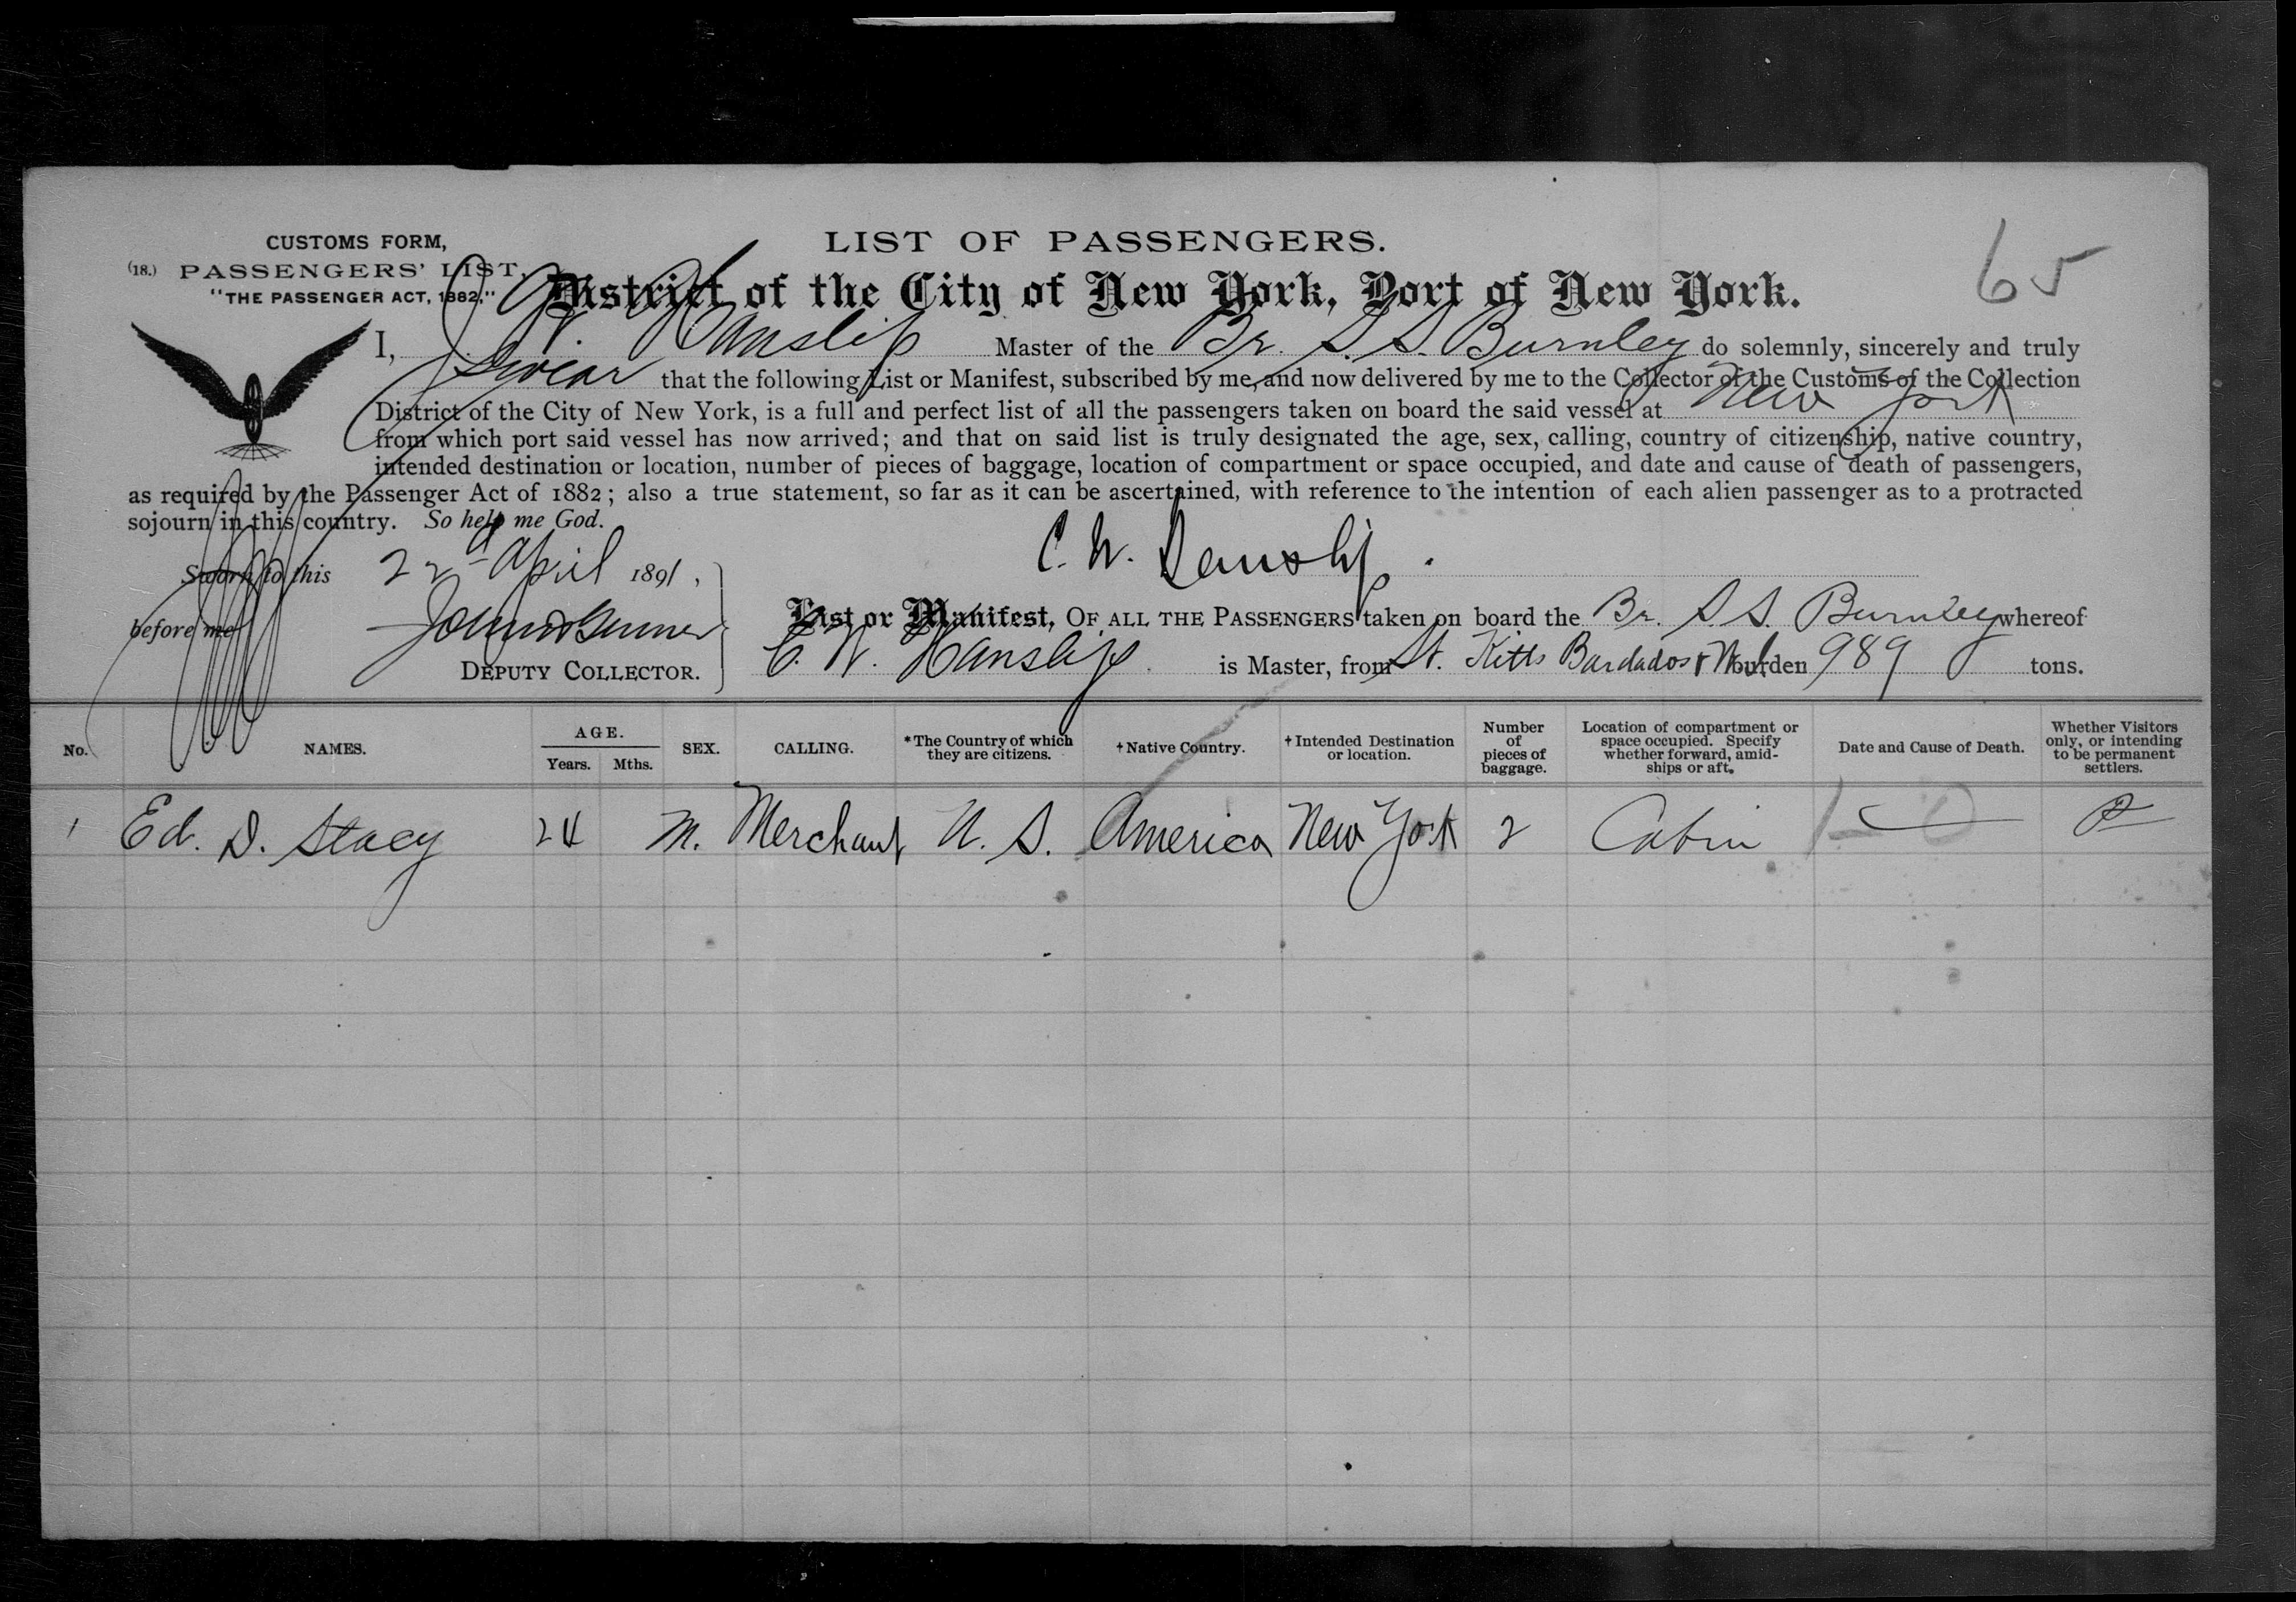 CUSTOMS FORM,
(18.) PASSENGERS' LIST.
"THE PASSENGER ACT, 1882,"
LIST OF PASSENGERS.
65
District of the City of New York, Port of New York.
I, C. W. Hanslip Master of the Br. S. S. Burnley do solemnly, sincerely and truly
swear that the following List or Manifest, subscribed by me, and now delivered by me to the Collector of the Customs of the Collection
District of the City of New York, is a full and perfect list of all the passengers taken on board the said vessel at New York
from which port said vessel has now arrived; and that on said list is truly designated the age, sex, calling, country of citizenship, native country,
intended destination or location, number of pieces of baggage, location of compartment or space occupied, and date and cause of death of passengers,
as required by the Passenger Act of 1882; also a true statement, so far as it can be ascertained, with reference to the intention of each alien passenger as to a protracted
sojourn in this country. So help me God.
Sworn to this 22d April 1891,
C. W. Hanslip.
before me
DEPUTY COLLECTOR.
List or Manifest, OF ALL THE PASSENGERS taken on board the Br. S. S. Burnley whereof
C. W. Hanslip is Master, from St. Kitts Bardados burden 989 tons.
No. NAMES. AGE. Years. Mths. SEX. CALLING. *The Country of which they are citizens. †Native Country. †Intended Destination or location. Number of pieces of baggage. Location of compartment or space occupied. Specify whether forward, amidships or aft. Date and Cause of Death. Whether Visitors only, or intending to be permanent settlers.
1 Ed. D. Stacy 24 M. Merchant U. S. America New York 2 Cabin